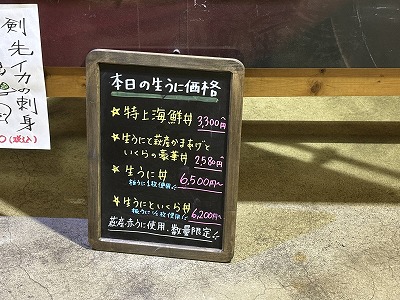 剣先イカの刺身
(税込)
本日の生うに価格
☆特上海鮮丼 3,300円
☆生うにと萩産かまあげと
いくらの豪華丼 2,580円
☆生うに丼 6,500円〜
板うに1枚使用
☆生うにといくら丼 6,200円〜
板うに1/2枚使用
萩産赤うに使用、数量限定